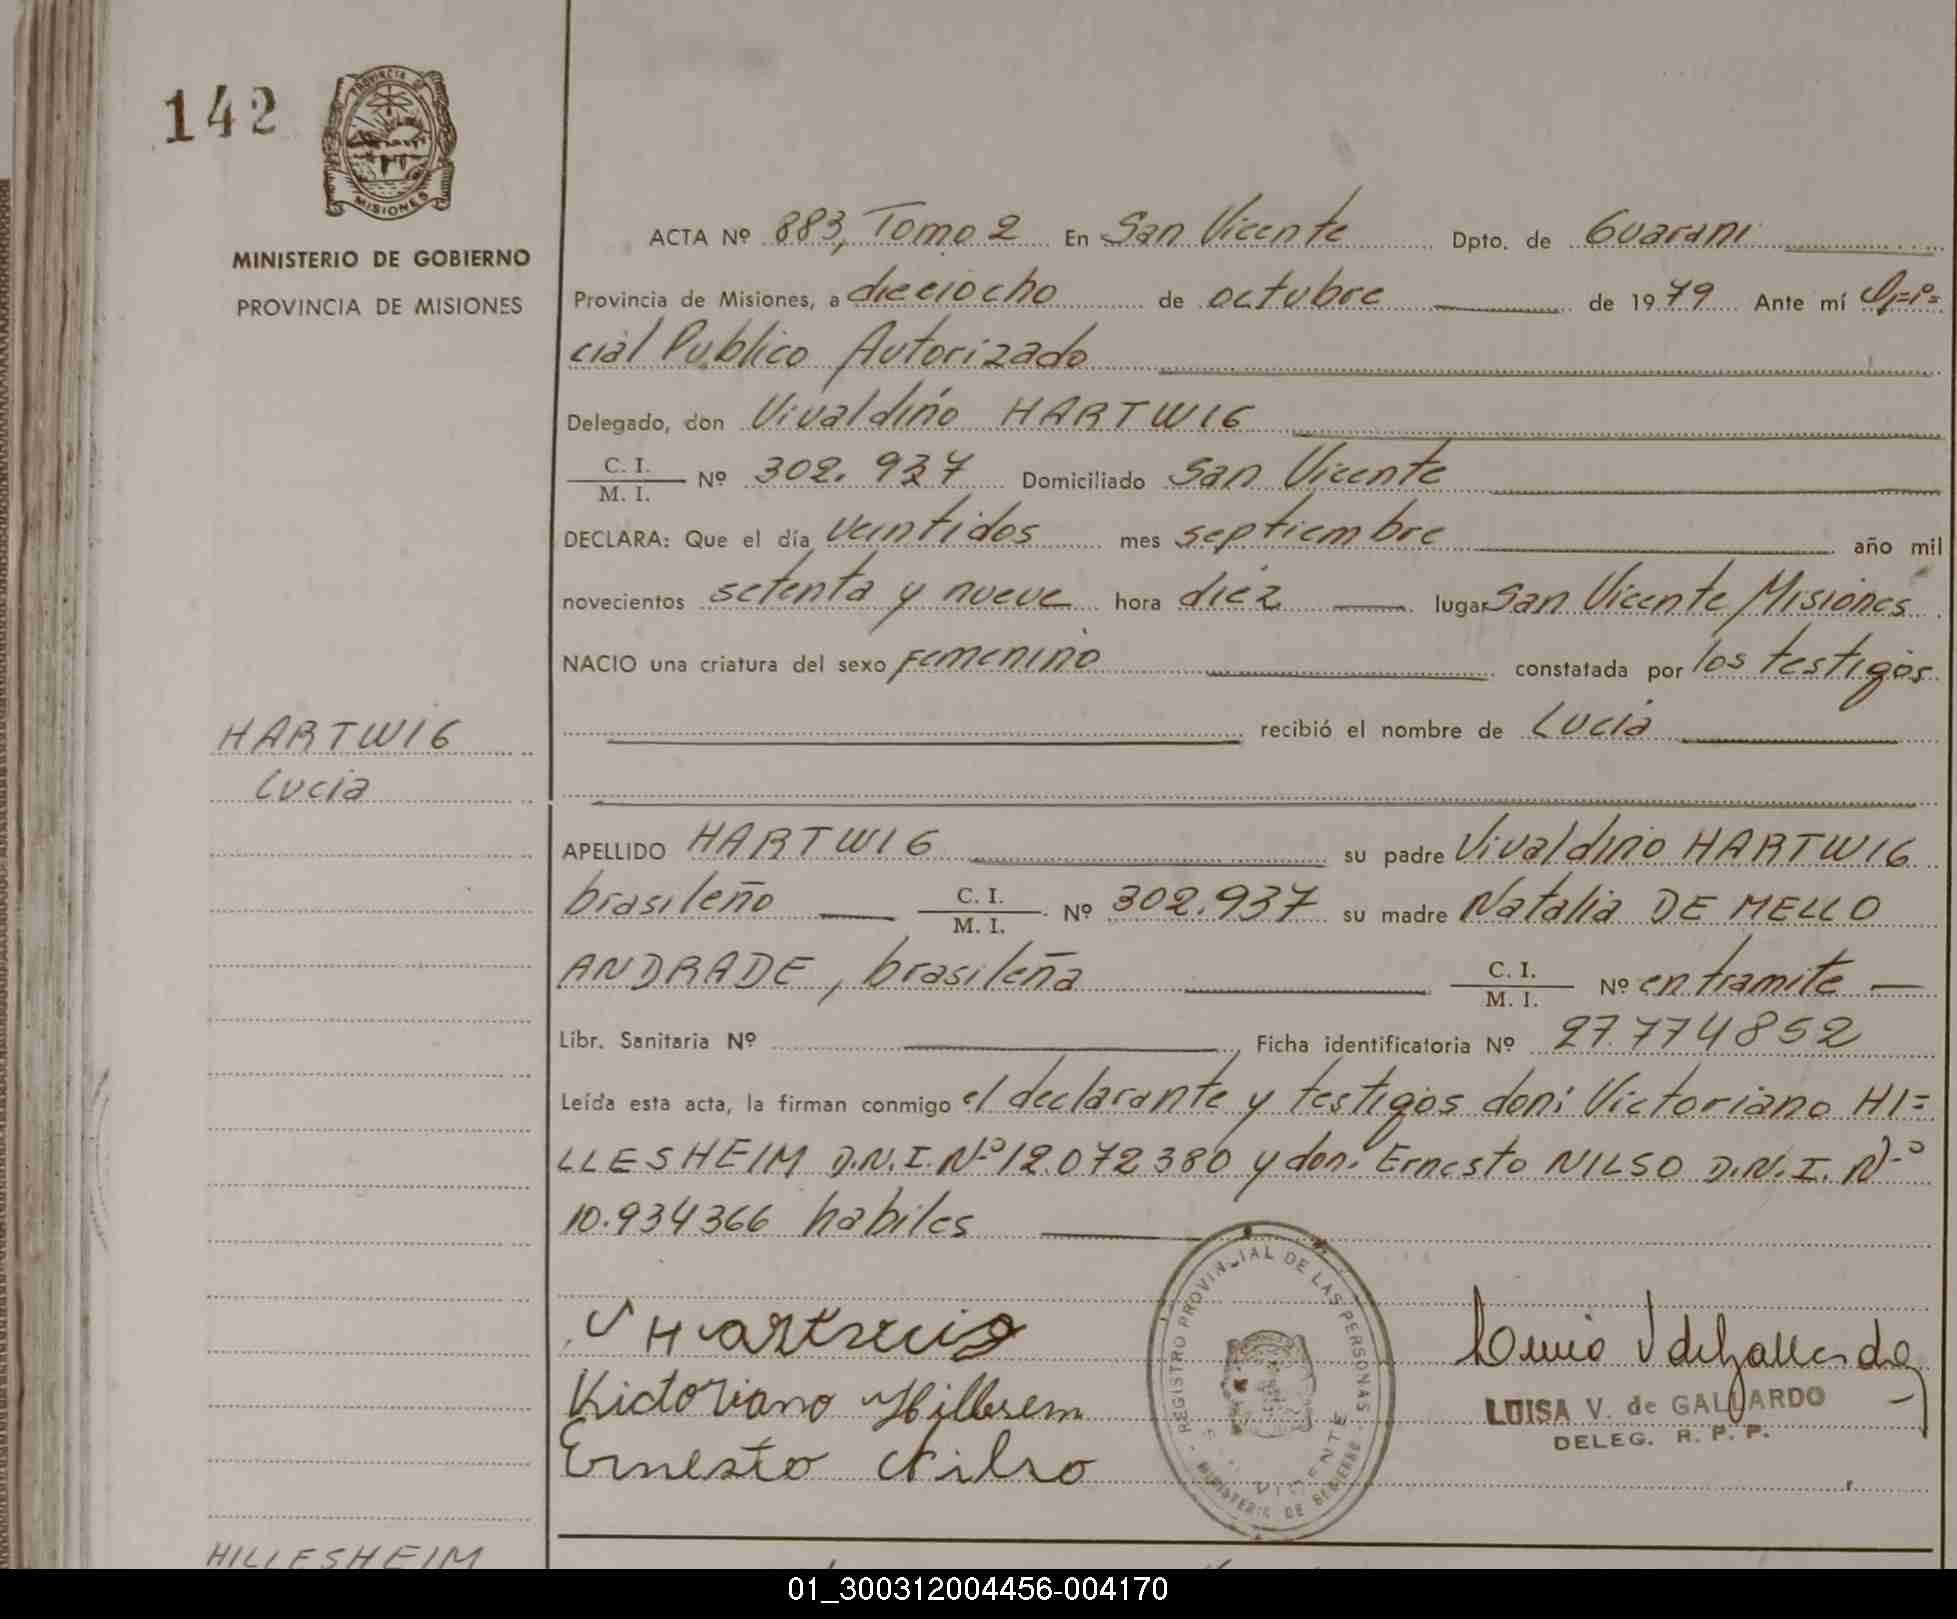 142
PROVINCIA DE
MISIONES
MINISTERIO DE GOBIERNO
PROVINCIA DE MISIONES
ACTA Nº 883, Tomo 2 En San Vicente Dpto. de Guarani
Provincia de Misiones, a dieciocho de octubre de 1979 Ante mí Ofi=
cial Publico Autorizado
Delegado, don Vivaldino HARTWIG
C. I.
M. I. Nº 302.937 Domiciliado San Vicente
DECLARA: Que el día veintidos mes septiembre año mil
novecientos setenta y nueve hora diez lugar San Vicente Misiones
NACIO una criatura del sexo Femenino constatada por los testigos
recibió el nombre de Lucia
HARTWIG
Lucia
APELLIDO HARTWIG su padre Vivaldino HARTWIG
brasileño C. I.
M. I. Nº 302.937 su madre Natalia DE MELLO
ANDRADE, brasileña C. I.
M. I. Nº en tramite
Libr. Sanitaria Nº Ficha identificatoria Nº 27.774852
Leída esta acta, la firman conmigo el declarante y testigos don: Victoriano HI=
LLESHEIM D.N.I. Nº 12.072380 y don: Ernesto NILSO D.N.I. Nº
10.934366 habiles
V Hartwig
Victoriano Hillesem
Ernesto Nilso
REGISTRO PROVINCIAL DE LAS PERSONAS
MINISTERIO DE GOBIERNO
VICENTE
LUISA V. de GALLARDO
DELEG. R. P. P.
HILLESHEIM
01_300312004456-004170